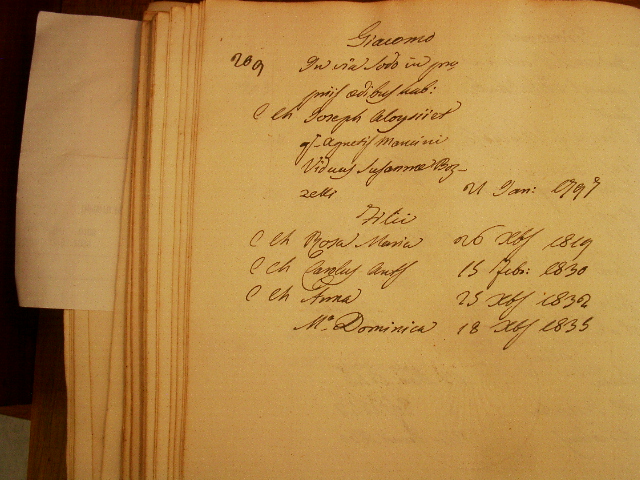 Giacomo
209 In via Sodo in pro
prijs ædibus hab:
C Ch Joseph Aloysii et
qm Agnetis Mancini
Viduus Susannæ Boz-
zelli 21 Jan: 1797
Filii
C Ch Rosa Maria 26 Xbs 1819
C Ch Carolus Ants 15 Febr: 1830
C Ch Anna 25 Xbs 1832
Ma Dominica 18 Xbs 1835